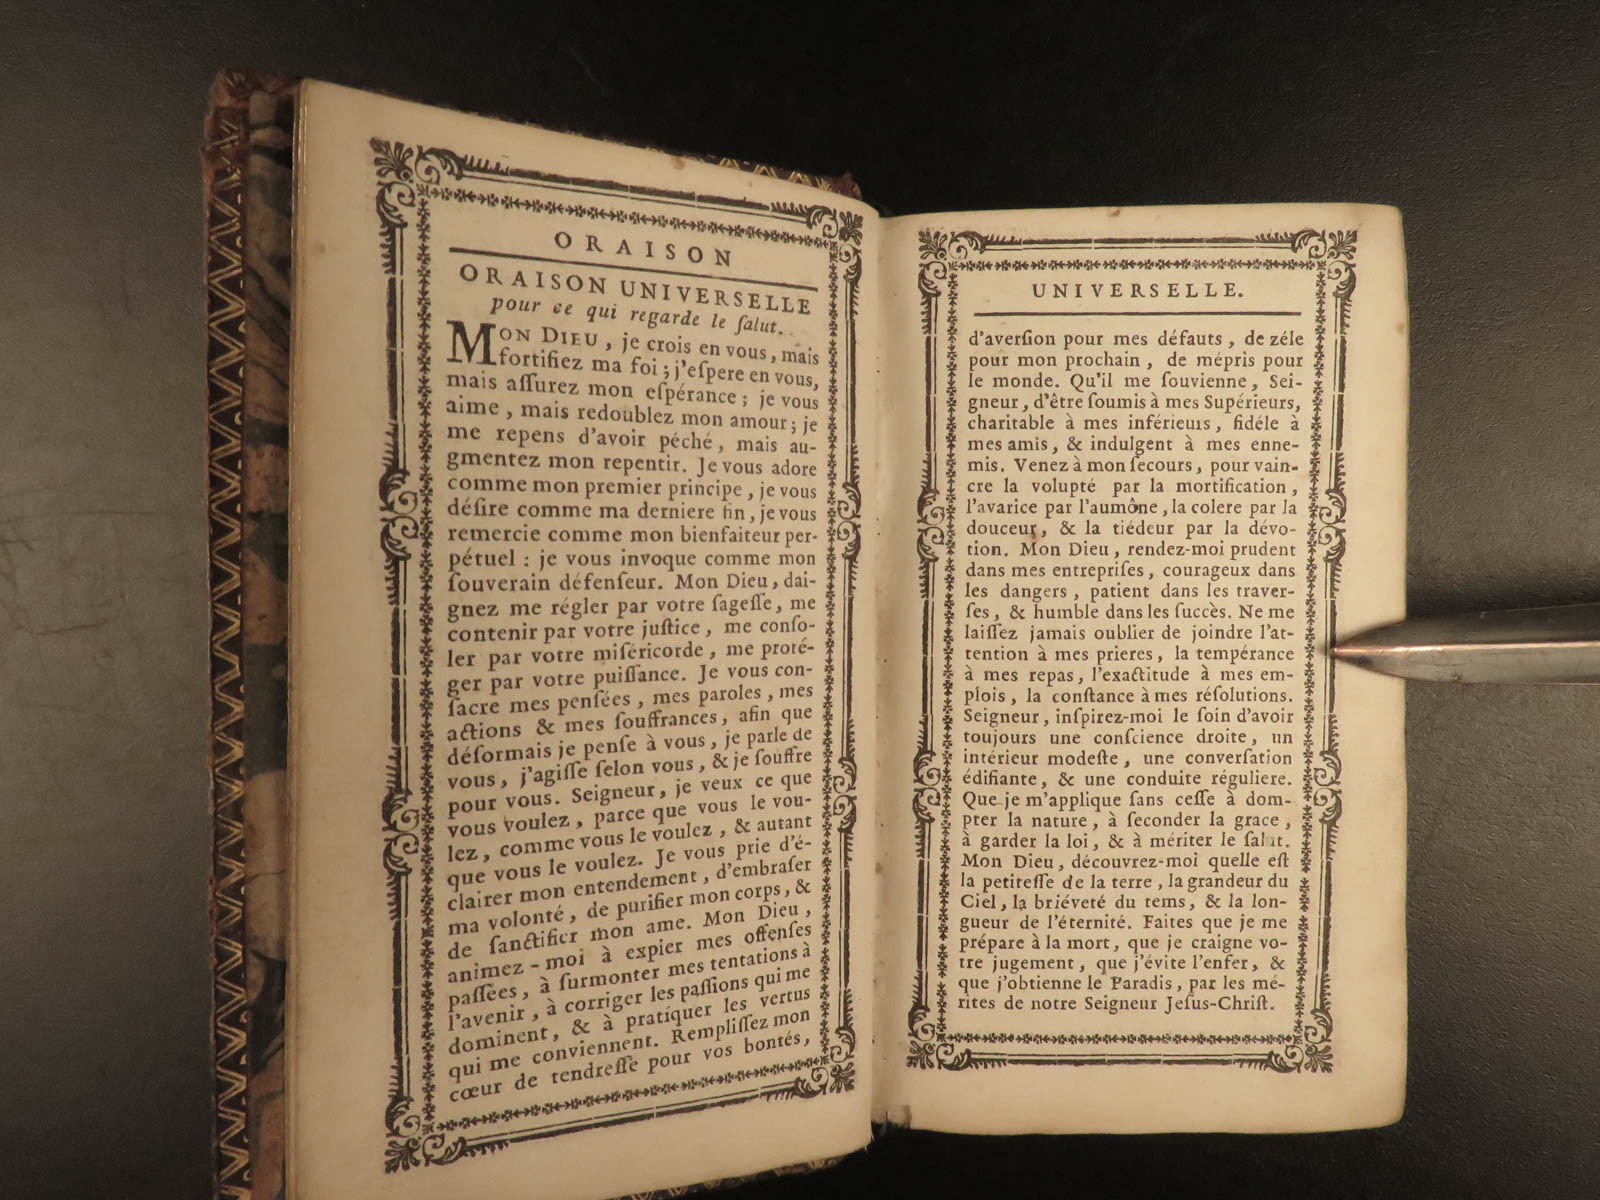 ORAISON
ORAISON UNIVERSELLE
pour ce qui regarde le ſalut.
MON DIEU, je crois en vous, mais
fortifiez ma foi; j'eſpere en vous,
mais aſſurez mon eſpérance; je vous
aime, mais redoublez mon amour; je
me repens d'avoir péché, mais au-
gmentez mon repentir. Je vous adore
comme mon premier principe, je vous
déſire comme ma derniere fin, je vous
remercie comme mon bienfaiteur per-
pétuel : je vous invoque comme mon
ſouverain défenſeur. Mon Dieu, dai-
gnez me régler par votre ſageſſe, me
contenir par votre juſtice, me conſo-
ler par votre miſéricorde, me proté-
ger par votre puiſſance. Je vous con-
ſacre mes penſées, mes paroles, mes
actions & mes ſouffrances, afin que
déſormais je penſe à vous, je parle de
vous, j'agiſſe ſelon vous, & je ſouffre
pour vous. Seigneur, je veux ce que
vous voulez, parce que vous le vou-
lez, comme vous le voulez, & autant
que vous le voulez. Je vous prie d'é-
clairer mon entendement, d'embraſer
ma volonté, de purifier mon corps, &
de ſanctifier mon ame. Mon Dieu,
animez-moi à expier mes offenſes
paſſées, à ſurmonter mes tentations à
l'avenir, à corriger les paſſions qui me
dominent, & à pratiquer les vertus
qui me conviennent. Rempliſſez mon
cœur de tendreſſe pour vos bontés,
UNIVERSELLE.
d'averſion pour mes défauts, de zéle
pour mon prochain, de mépris pour
le monde. Qu'il me ſouvienne, Sei-
gneur, d'être ſoumis à mes Supérieurs,
charitable à mes inférieurs, fidéle à
mes amis, & indulgent à mes enne-
mis. Venez à mon ſecours, pour vain-
cre la volupté par la mortification,
l'avarice par l'aumône, la colere par la
douceur, & la tiédeur par la dévo-
tion. Mon Dieu, rendez-moi prudent
dans mes entrepriſes, courageux dans
les dangers, patient dans les traver-
ſes, & humble dans les ſuccès. Ne me
laiſſez jamais oublier de joindre l'at-
tention à mes prieres, la tempérance
à mes repas, l'exactitude à mes em-
plois, la conſtance à mes réſolutions.
Seigneur, inſpirez-moi le ſoin d'avoir
toujours une conſcience droite, un
intérieur modeſte, une converſation
édifiante, & une conduite réguliere.
Que je m'applique ſans ceſſe à dom-
pter la nature, à ſeconder la grace,
à garder la loi, & à mériter le ſalut.
Mon Dieu, découvrez-moi quelle eſt
la petiteſſe de la terre, la grandeur du
Ciel, la briéveté du tems, & la lon-
gueur de l'éternité. Faites que je me
prépare à la mort, que je craigne vo-
tre jugement, que j'évite l'enfer, &
que j'obtienne le Paradis, par les mé-
rites de notre Seigneur Jeſus-Chriſt.